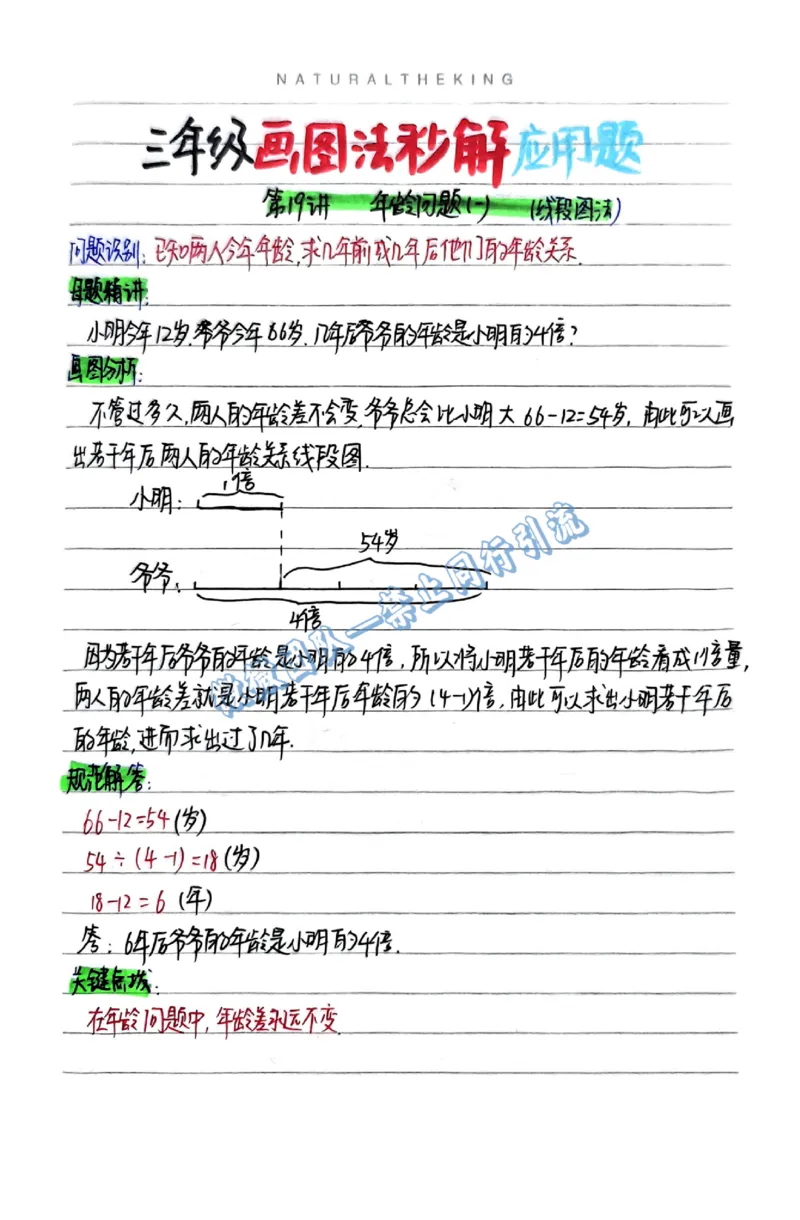 NATURALTHEKING
三年级画图法秒解应用题
第19讲 年龄问题(一) (线段图法)
问题识别：已知两人今年年龄,求几年前或几年后他们的年龄关系.
母题精讲：
小明今年12岁.爷爷今年66岁.几年后爷爷的年龄是小明的4倍?
画图分析：
不管过多久,两人的年龄差不会变.爷爷总会比小明大66-12=54岁,由此可以画
出若干年后两人的年龄关系线段图.
1倍
小明：
54岁
爷爷：
4倍
因为若干年后爷爷的年龄是小明的4倍,所以将小明若干年后的年龄看成1倍量,
两人的年龄差就是小明若干年后年龄的(4-1)倍,由此可以求出小明若干年后
的年龄,进而求出过了几年.
规范解答：
66-12=54(岁)
54÷(4-1)=18(岁)
18-12=6(年)
答：6年后爷爷的年龄是小明的4倍.
关键点拨：
在年龄问题中,年龄差永远不变.
团队—禁止同行引流